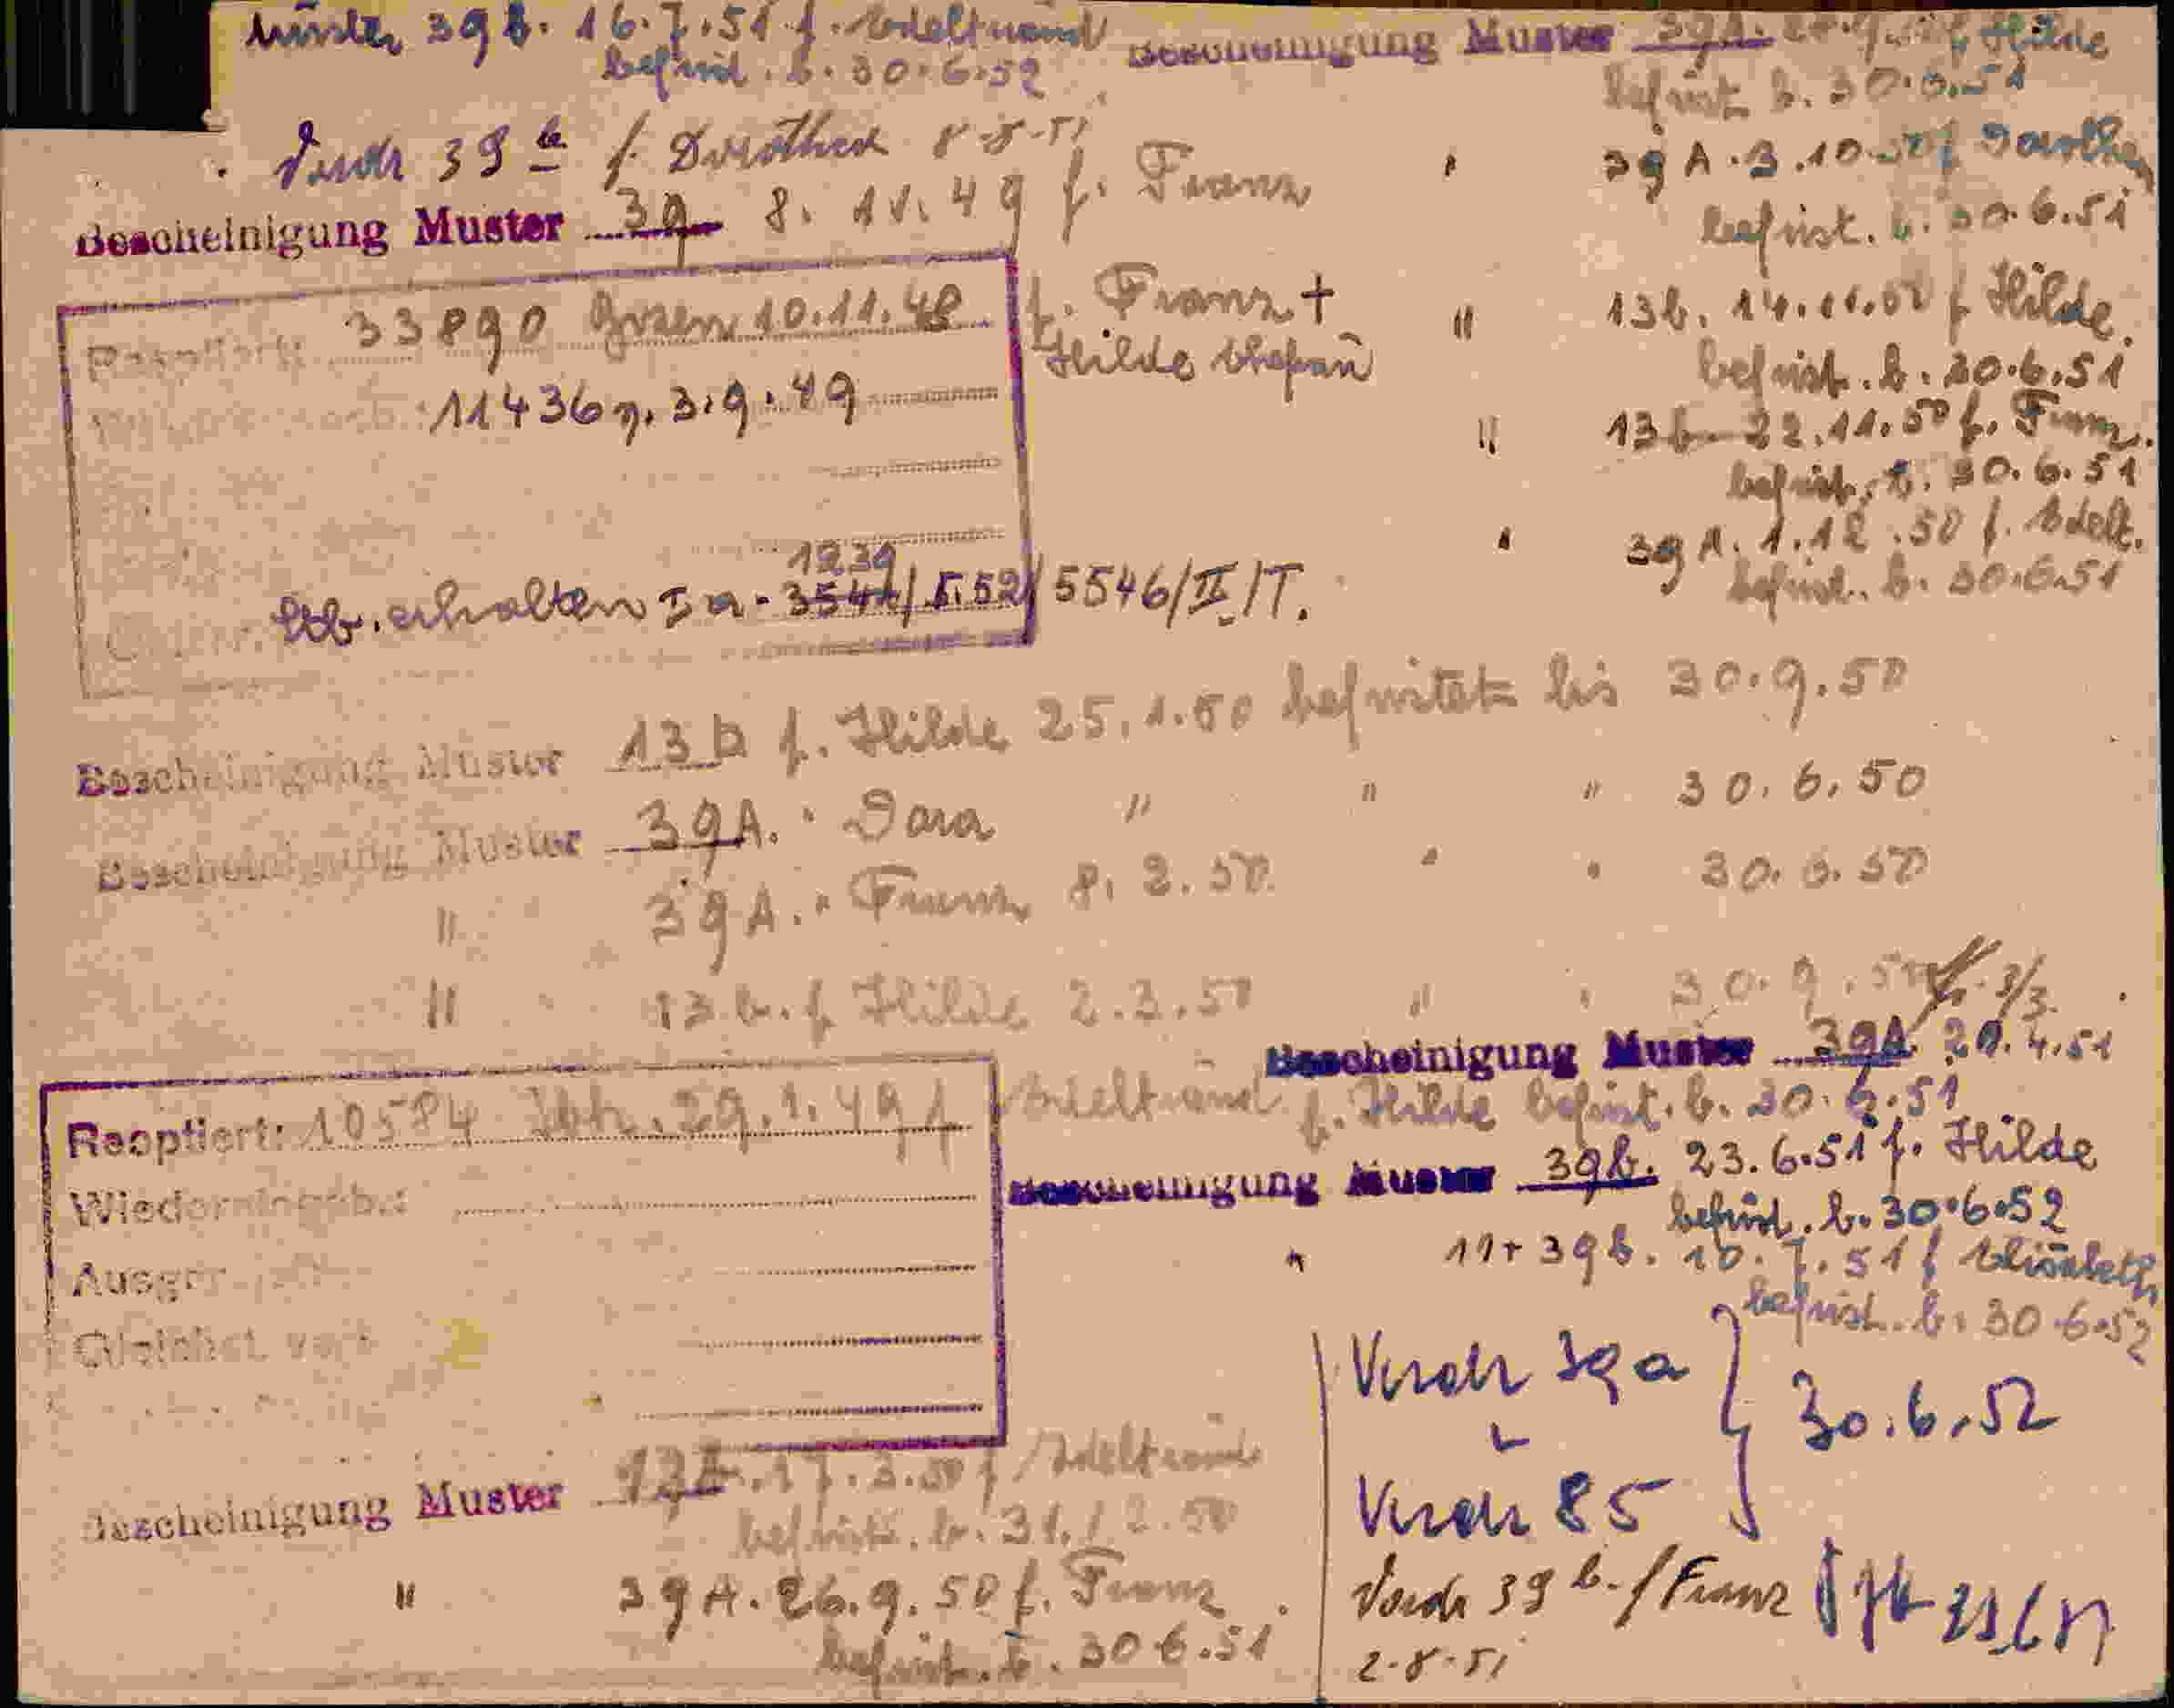 Muster 39b. 16.7.51 f. Edeltraud
befrist. b. 30.6.52
Vordr 39 b f. Dorothea 8-8-51
Bescheinigung Muster 39 8.11.49 f. Franz
33890 10.11.48 f. Franz +
Hilde
11436 3.9.49
1239
Stb. erhalten I a. 3544/5.52/5546/II/T.
Bescheinigung Muster 39A. Hilde
befrist. b. 30.
" 39A. 3.10.50 f.
befrist. b. 30.6.51
" 13b. 14.11.50 f. Hilde.
befrist. b. 30.6.51
" 13b. 22.11.50 f. Franz.
befrist. b. 30.6.51
" 39A. 1.12.50 f. Edelt.
befrist. b. 30.6.51
Bescheinigung Muster 13b f. Hilde 25.1.50 befristet bis 30.9.50
Bescheinigung Muster 39A. " Dora " " " 30.6.50
" 39A. " Franz 8.2.50 " " 30.6.50
" 13b. f. Hilde 2.3.50 " " 30.9.50 3/3.
Reoptiert: 10584 29.1.49 f Edeltraud
Wiedereingeb.:
Ausgebürgert
Gleichst. verf.
Bescheinigung Muster 39A 20.4.51
f. Hilde befrist. b. 30.6.51
Bescheinigung Muster 39b. 23.6.51 f. Hilde
befrist. b. 30.6.52
" 11+39b. 10.7.51 f Elisabeth
befrist. b. 30.6.52
Vordr 39a
Vordr 85
30.6.52
Vordr 39 b. f Franz
2-8-51
Bescheinigung Muster 17.3.50 f Edeltraud
befrist. b. 31.12.50
" 39A. 26.9.50 f. Franz
befrist. b. 30.6.51